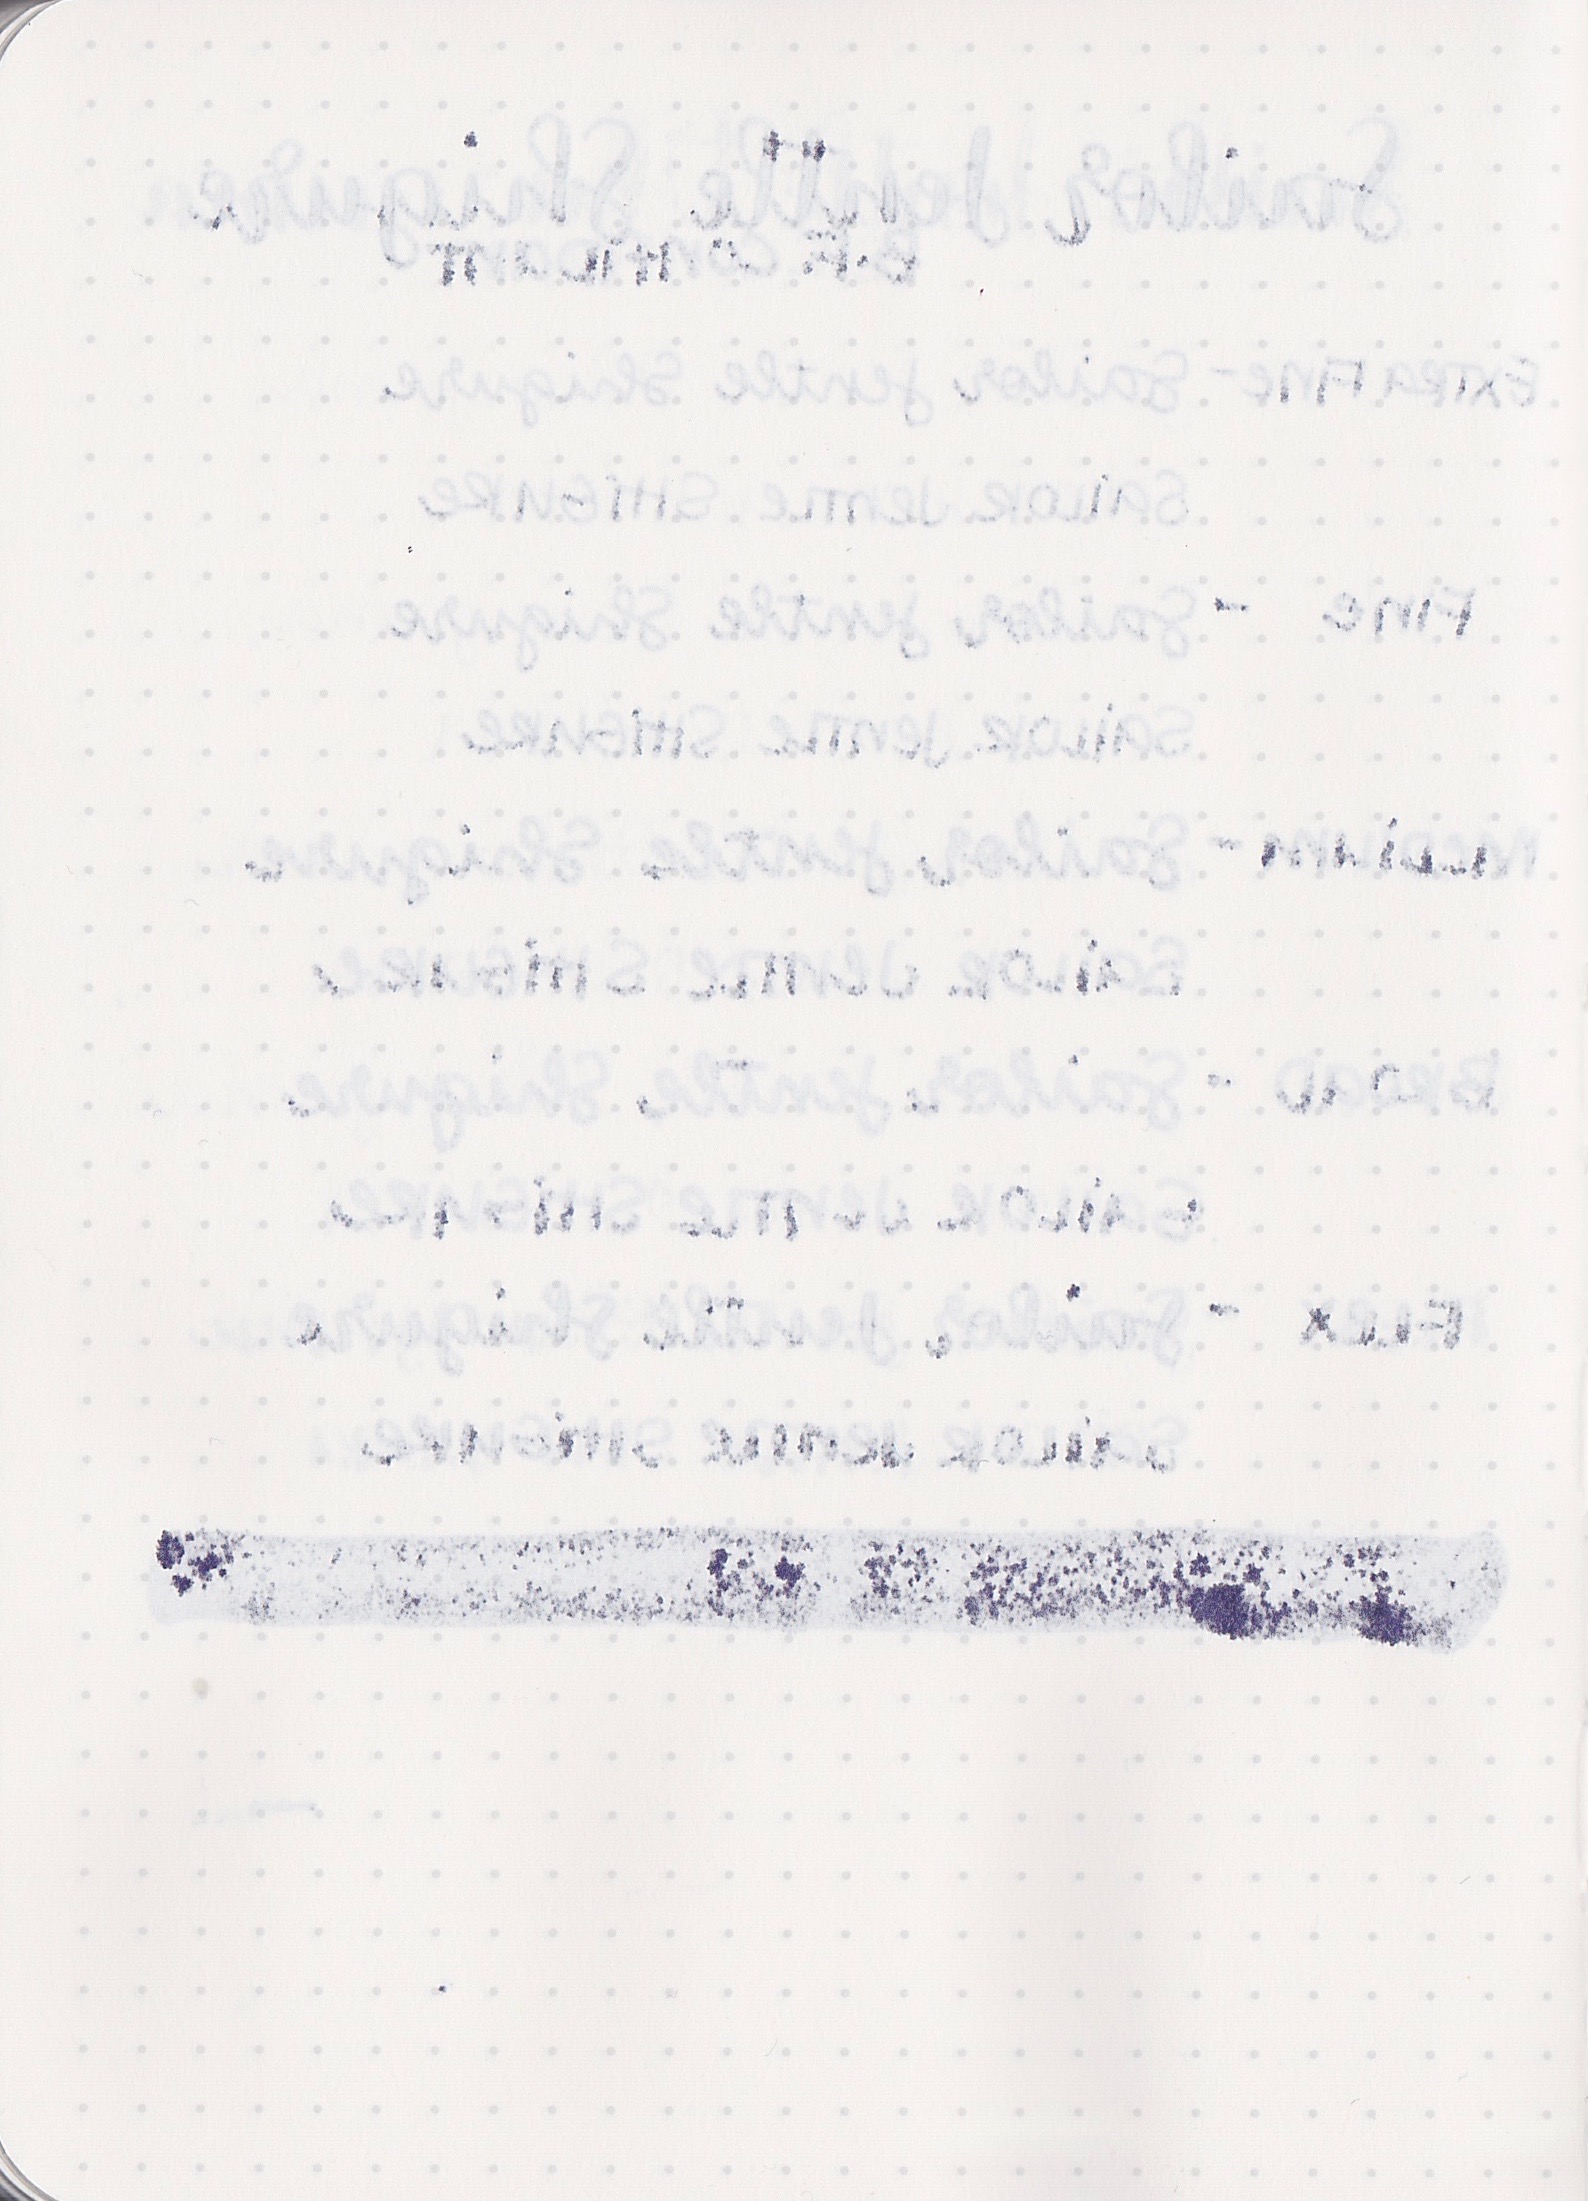 Sailor Jentle Shigure
EXTRA FINE - Sailor Jentle Shigure
SAILOR JENTLE SHIGURE
FINE - Sailor Jentle Shigure
SAILOR JENTLE SHIGURE
MEDIUM - Sailor Jentle Shigure
SAILOR JENTLE SHIGURE
BROAD - Sailor Jentle Shigure
SAILOR JENTLE SHIGURE
FLEX - Sailor Jentle Shigure
SAILOR JENTLE SHIGURE